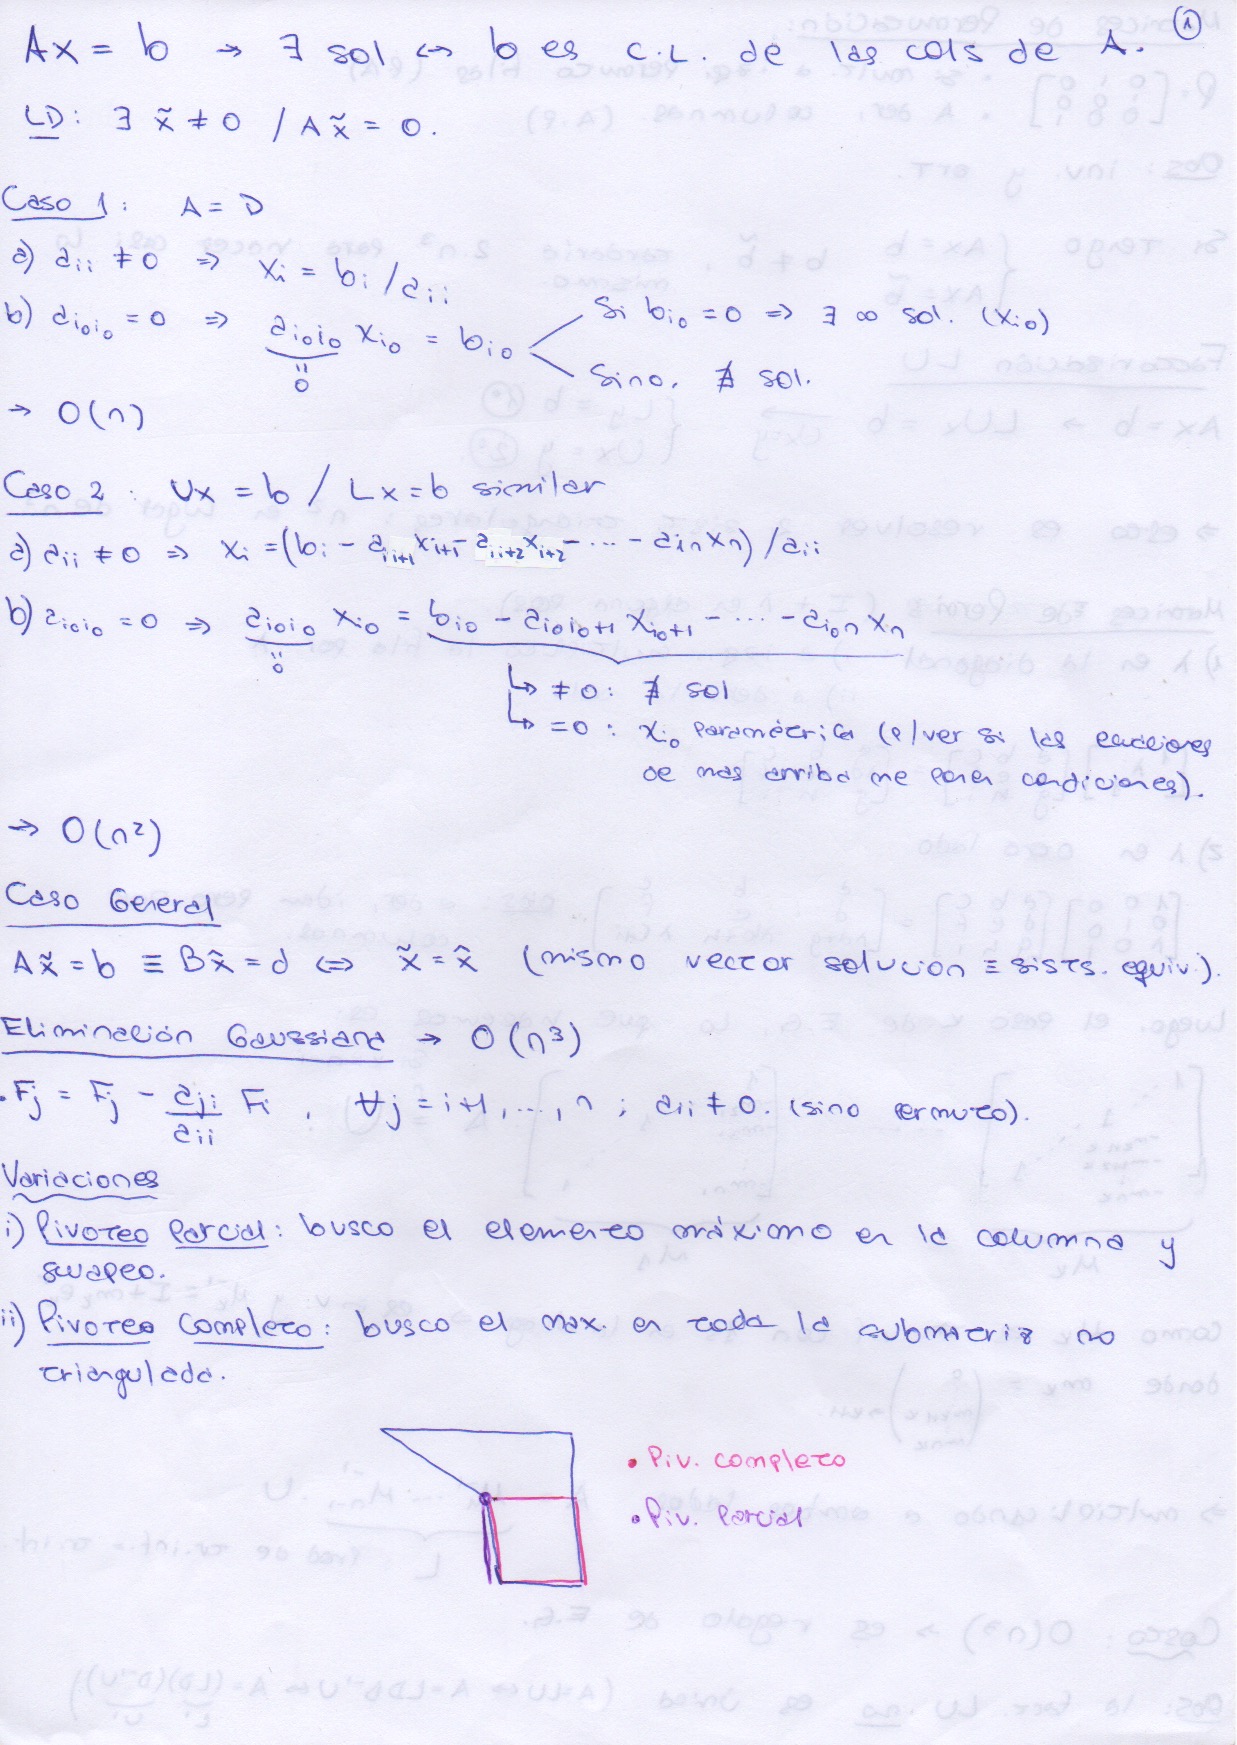 ①
Ax = b → ∃ sol ↔ b es c.l. de las cols de A.
LD: ∃ x̃ ≠ 0 / A x̃ = 0.
Caso 1: A = D
a) aii ≠ 0 ⇒ xi = bi / aii
b) ai₀i₀ = 0 ⇒ ai₀i₀ xi₀ = bi₀
Si bi₀ = 0 ⇒ ∃ ∞ sol. (xi₀)
Sino, ∄ sol.
= 0
→ O(n)
Caso 2: Ux = b / Lx = b similar
a) aii ≠ 0 ⇒ xi = (bi - aii+1 xi+1 - aii+2 xi+2 - ... - ain xn) / aii
b) ai₀i₀ = 0 ⇒ ai₀i₀ xi₀ = bi₀ - ai₀i₀+1 xi₀+1 - ... - ai₀n xn
= 0
↳ ≠ 0: ∄ sol
↳ = 0: xi₀ paramétrica (p/ver si las ecuaciones
de mas arriba me ponen condiciones).
→ O(n²)
Caso General
A x̃ = b ≡ B x̂ = d ⇔ x̃ = x̂ (mismo vector solucion ≡ sists. equiv.).
Eliminación Gaussiana → O(n³)
• Fj = Fj - aji/aii Fi, ∀j = i+1, ..., n ; aii ≠ 0. (sino permuto).
Variaciones
i) Pivoteo Parcial: busco el elemento máximo en la columna y
swapeo.
ii) Pivoteo Completo: busco el max. en toda la submatriz no
triangulada.
• Piv. completo
• Piv. parcial